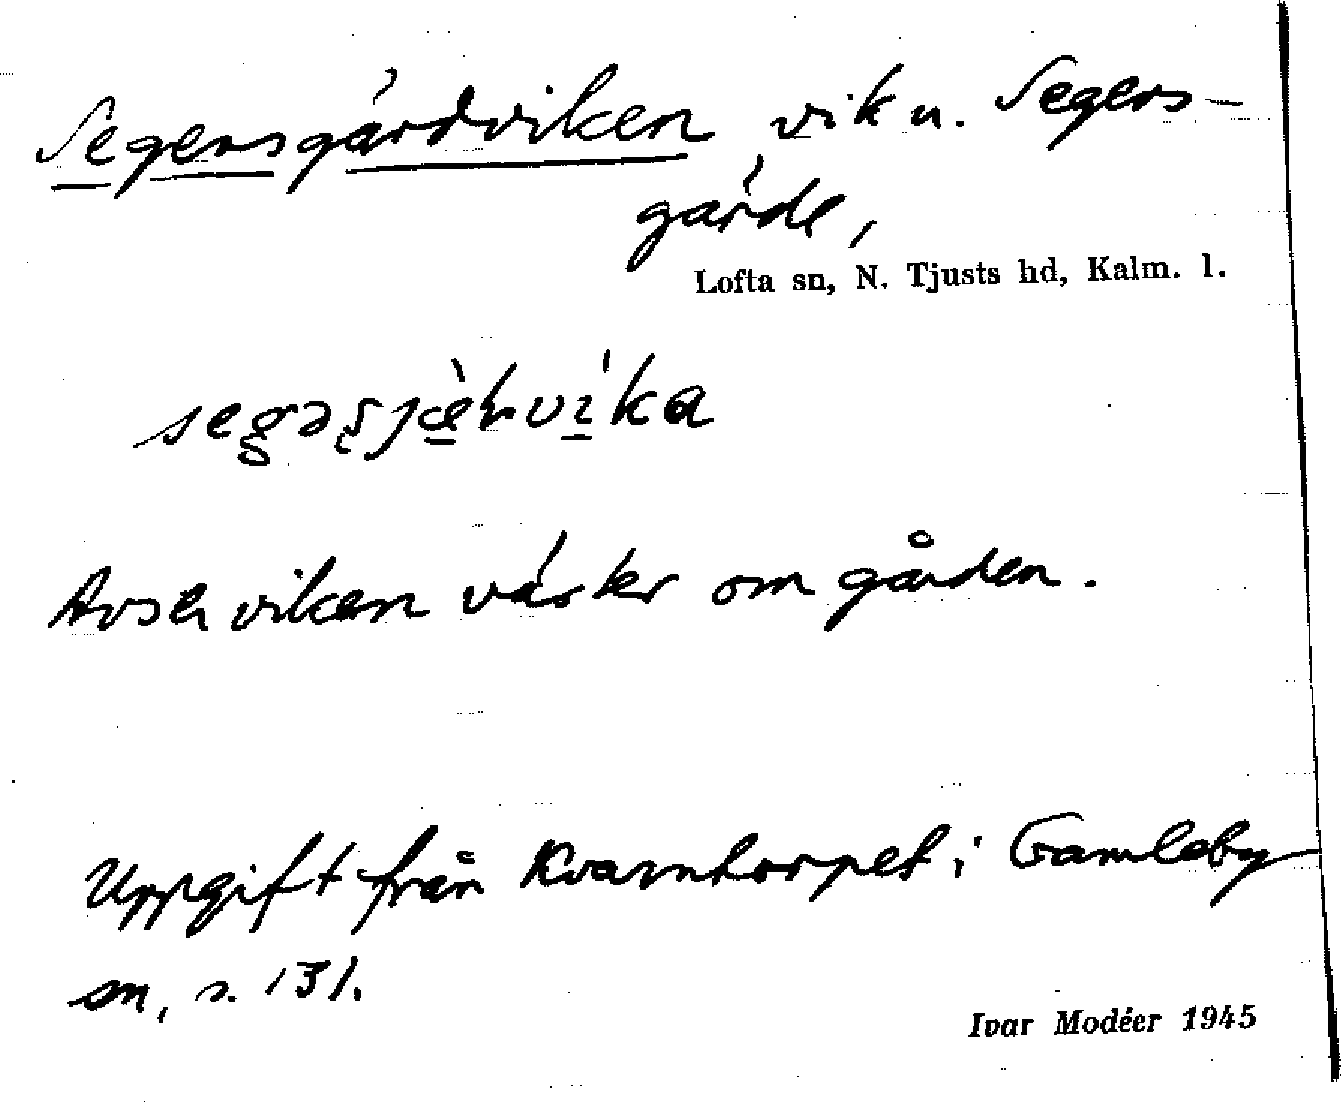 Segersgärdviken vik u. Segers-
gärde,
Lofta sn, N. Tjusts hd, Kalm. l.
Avser viken väster om gården.
Uppgift från Kvarntorpet i Gamleby
sn, s. 131.
Ivar Modéer 1945